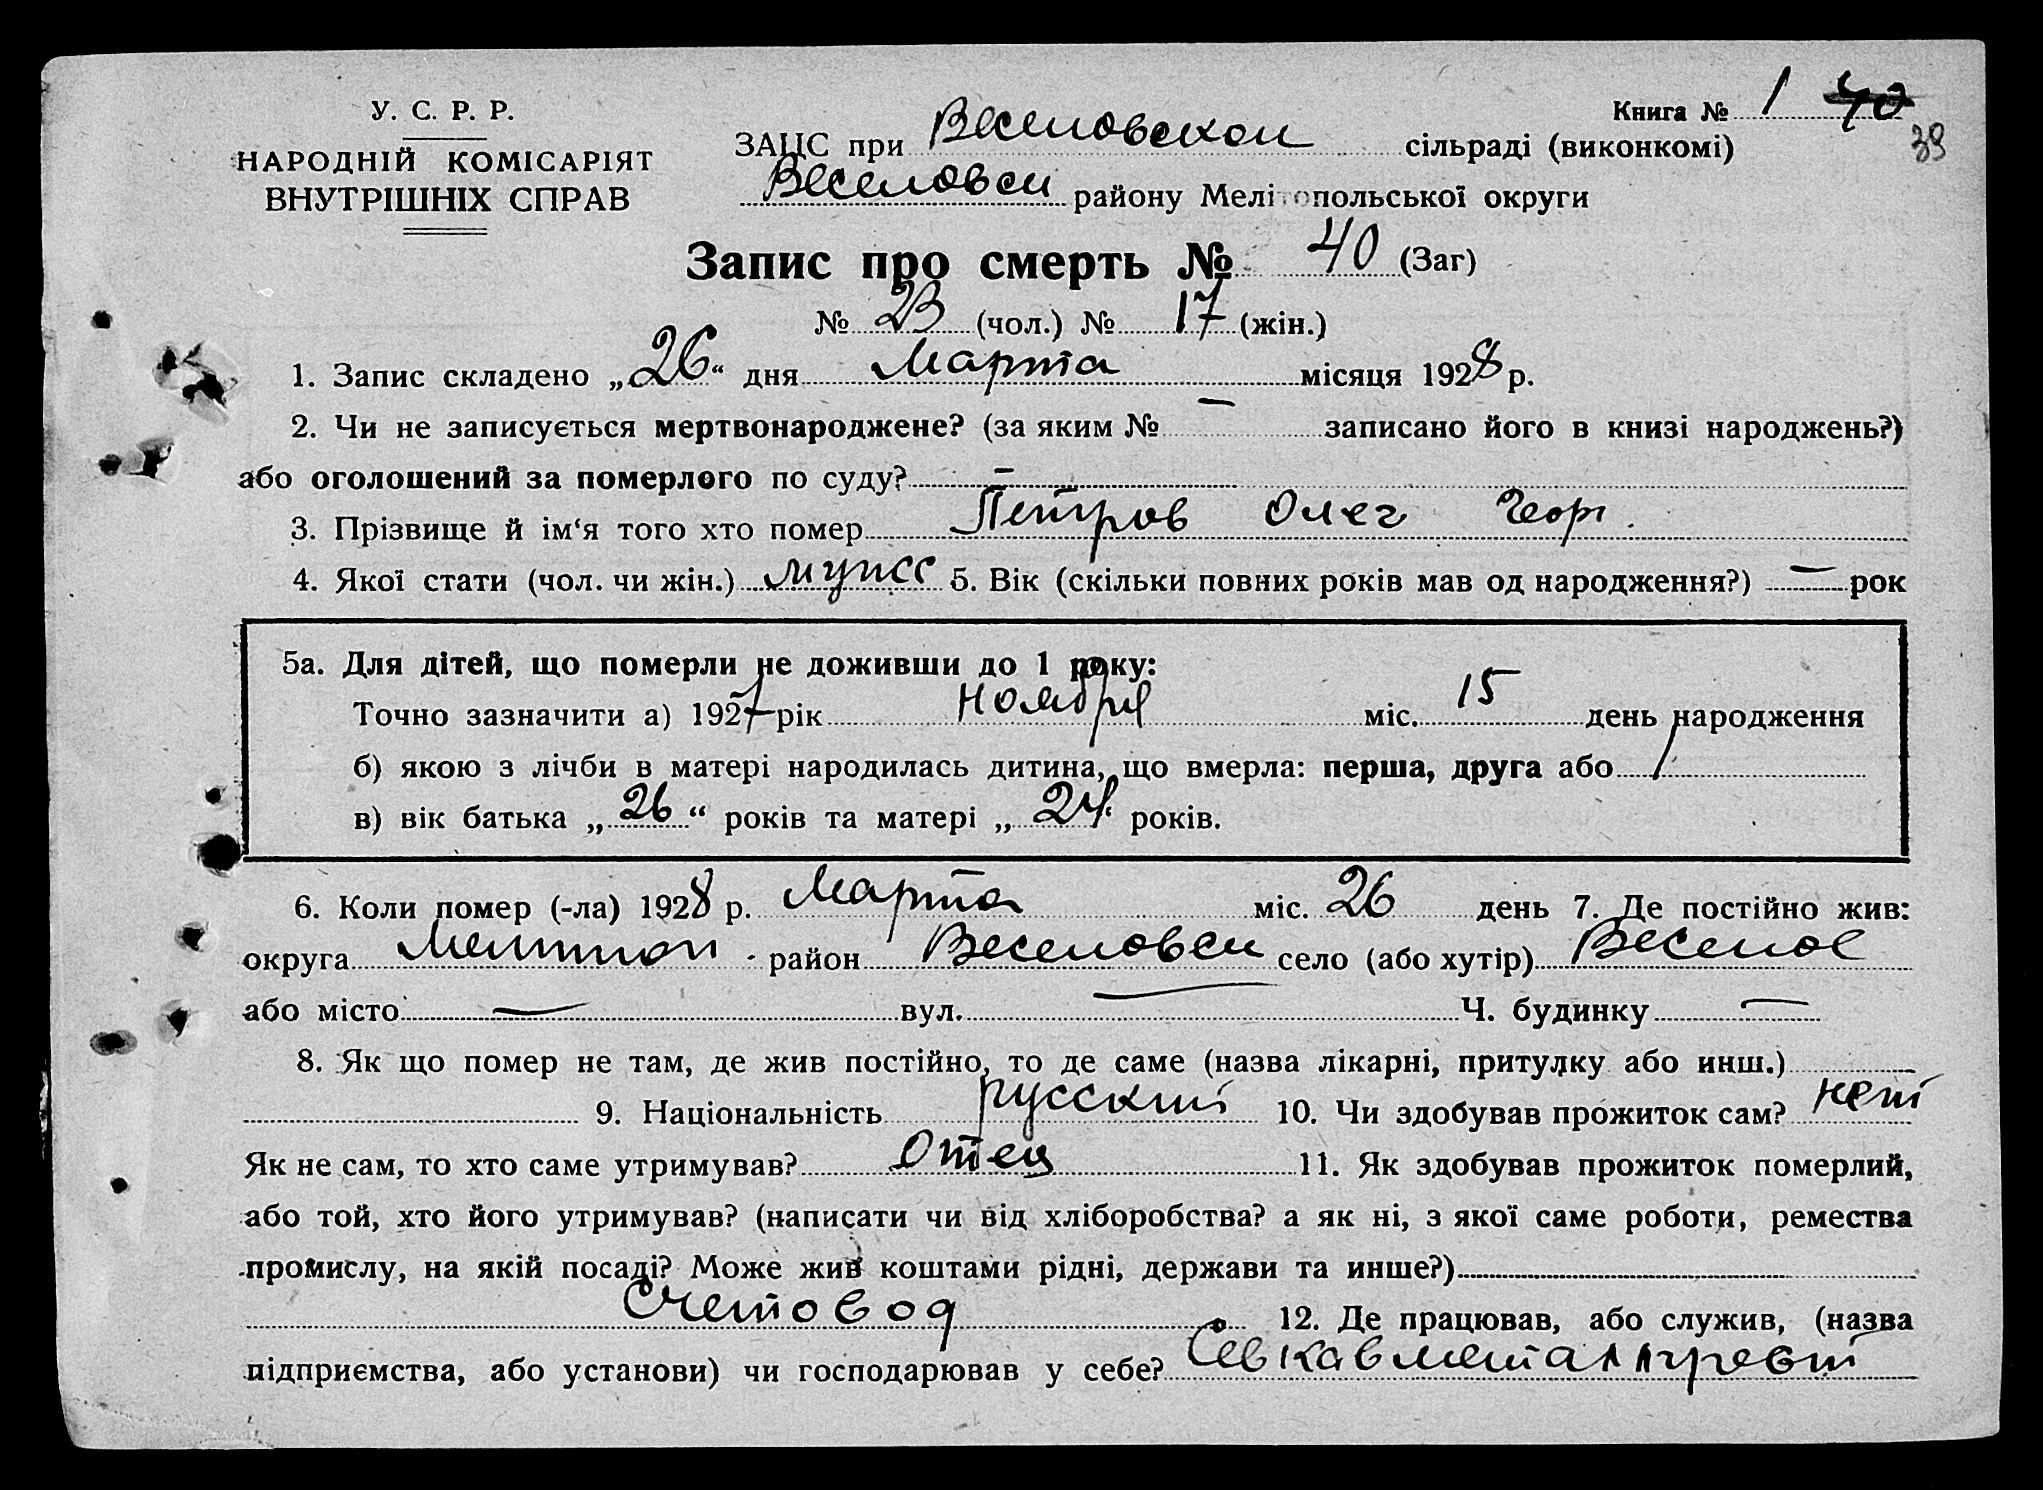 У. С. Р. Р.
НАРОДНІЙ КОМІСАРІЯТ
ВНУТРІШНІХ СПРАВ
Книга № 1 40
39
ЗАЦС при Веселовской сільраді (виконкомі)
Веселовск району Мелітопольської округи
Запис про смерть № 40 (Заг)
№ 23 (чол.) № 17 (жін.)
1. Запис складено „26“ дня Марта місяця 1928 р.
2. Чи не записується мертвонароджене? (за яким № — записано його в книзі народжень?)
або оголошений за померлого по суду? —
3. Прізвище й ім‘я того хто помер Петров Олег Георг.
4. Якої стати (чол. чи жін.) мужск 5. Вік (скільки повних років мав од народження?) — рок
5а. Для дітей, що померли не доживши до 1 року:
Точно зазначити а) 1927 рік ноября міс. 15 день народження
б) якою з лічби в матері народилась дитина, що вмерла: перша, друга або /
в) вік батька „26“ років та матері „24“ років.
6. Коли помер (-ла) 1928 р. Марта міс. 26 день 7. Де постійно жив:
округа Мелитоп район Веселовск село (або хутір) Веселое
або місто — вул. — Ч. будинку —
8. Як що помер не там, де жив постійно, то де саме (назва лікарні, притулку або инш.)
9. Національність русский 10. Чи здобував прожиток сам? нет
Як не сам, то хто саме утримував? Отец 11. Як здобував прожиток померлий,
або той, хто його утримував? (написати чи від хліборобства? а як ні, з якої саме роботи, ремества
промислу, на якій посаді? Може жив коштами рідні, держави та инше?)
Счетовод 12. Де працював, або служив, (назва
підприємства, або установи) чи господарював у себе?